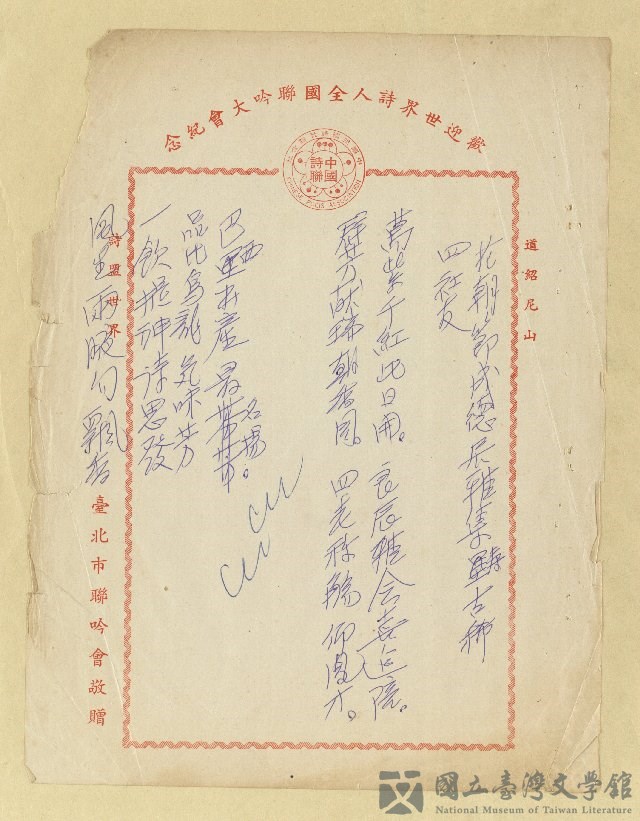 歡迎世界詩人全國聯吟大會紀念
中國詩聯
道紹尼山
花朝節成德居雅集歸古稀
四社友
萬紫千紅此日開。良辰雅會喜追陪。
羣芳獻瑞朝香国。四老称觥仰凤才。
巴西出產最名揚。
品比烏龍氣味芳
一飲提神詩思發
風生兩腋句飄香
詩盟世界
臺北市聯吟會敬贈
國立臺灣文學館
National Museum of Taiwan Literature